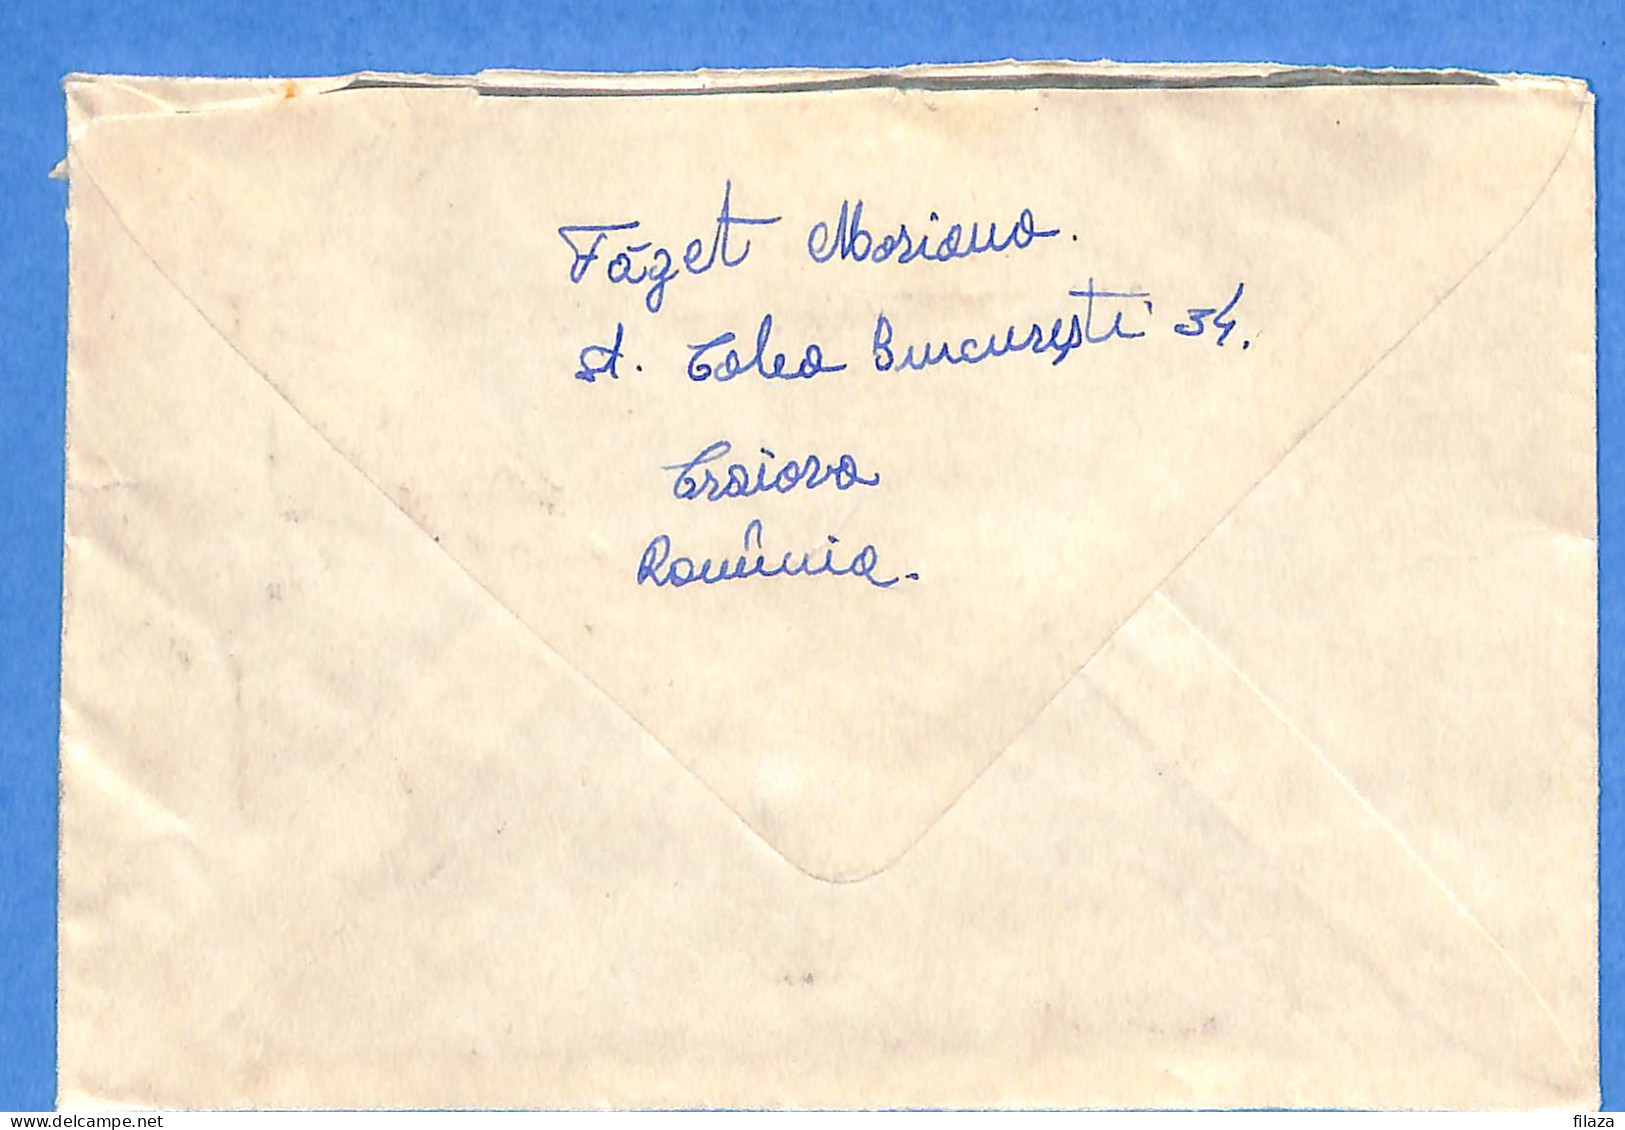 Făzet Mariana.
st. Calea București 34.
Craiova
România.
delcampe.net
filaza